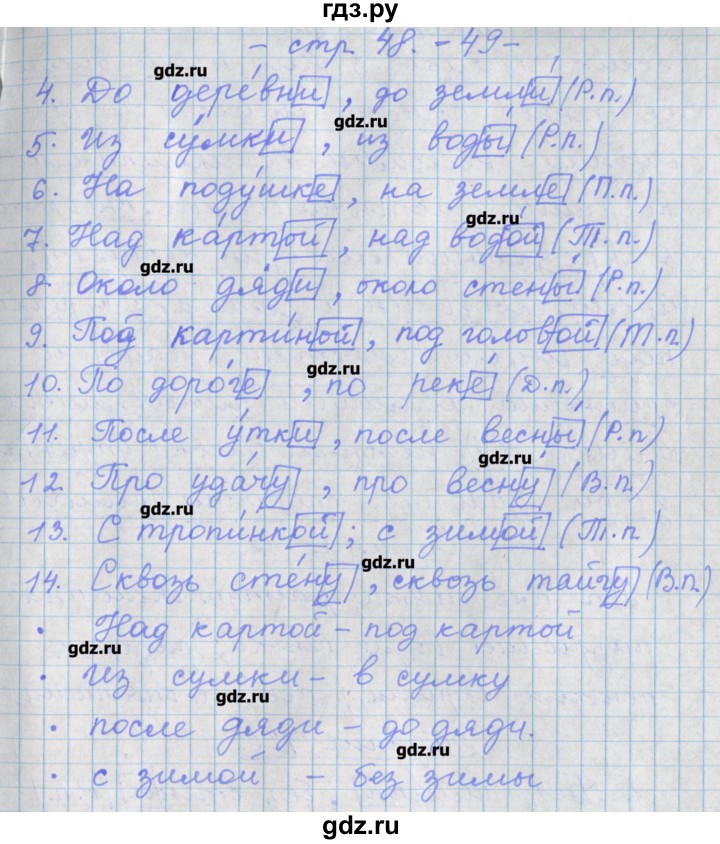 гдз.ру
- стр 48. - 49 -
gdz.ru
4. До дере́вни, до земли́ (Р.п.)
gdz.ru
5. Из су́мки, из воды́ (Р.п.)
6. На поду́шке, на земле́ (П.п.)
gdz.ru
7. Над ка́ртой, над водо́й (Т.п.)
gdz.ru
8. Около дя́ди, около стены́ (Р.п.)
9. Под карти́ной, под головой (Т.п.)
gdz.ru
10. По доро́ге, по реке́ (Д.п.)
11. После у́тки, после весны́ (Р.п)
gdz.ru
12. Про уда́чу, про весну́ (В.п.)
gdz.ru
13. С тропи́нкой; с зимо́й (Т.п.)
gdz.ru
14. Сквозь сте́ну, сквозь тайгу́ (В.п.)
· Над картой - под картой
gdz.ru
· Из сумки - в сумку
gdz.ru
· после дяди - до дяди.
gdz.ru
· с зимой - без зимы
gdz.ru